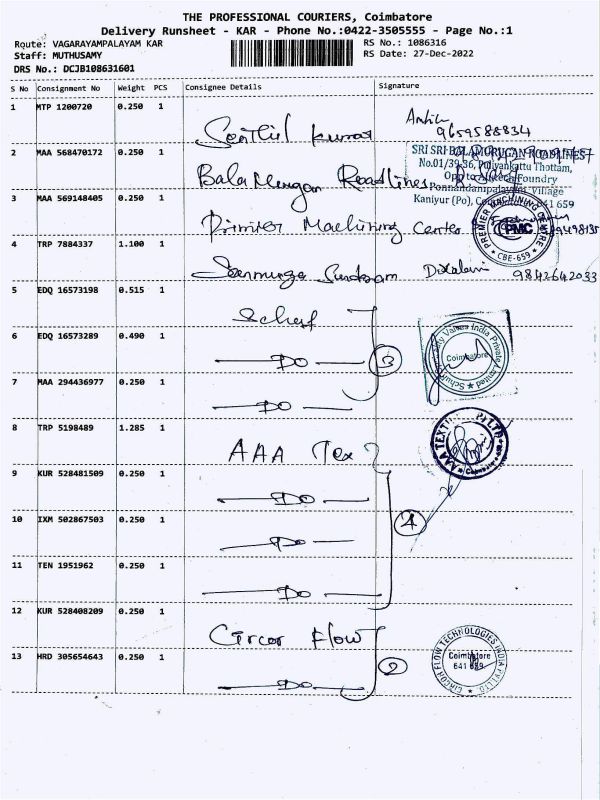 THE PROFESSIONAL COURIERS, Coimbatore
Delivery Runsheet - KAR - Phone No.:0422-3505555 - Page No.:1
Route: VAGARAYAMPALAYAM KAR
RS No.: 1086316
Staff: MUTHUSAMY
RS Date: 27-Dec-2022
DRS No.: DCJB108631601
S No Consignment No Weight PCS Consignee Details Signature
1 MTP 1200720 0.250 1 Senthil Kumar
9659588834
2 MAA 568470172 0.250 1 Bala Murugan Roadlines
SRI SRI BALAMURUGAN ROADLINES
No.01/39-36, Puliyankattu Thottam,
Foundry
Village
Kaniyur (Po), 641 659
3 MAA 569148405 0.250 1 Primier Machining Center
PREMIER MACHINING CENTRE
PMC
CBE-659
4 TRP 7884337 1.100 1 Sundram 9842642033
5 EDQ 16573198 0.515 1
6 EDQ 16573289 0.490 1 DO 3
Values India Private Limited
Coimbatore
7 MAA 294436977 0.250 1 DO
8 TRP 5198489 1.285 1 AAA Tex
9 KUR 528481509 0.250 1 DO
10 IXM 502867503 0.250 1 DO 4
11 TEN 1951962 0.250 1 DO
12 KUR 528408209 0.250 1 Circor Flow
13 HRD 305654643 0.250 1 DO 2
CIRCOR FLOW TECHNOLOGIES INDIA PVT LTD
Coimbatore
641 659